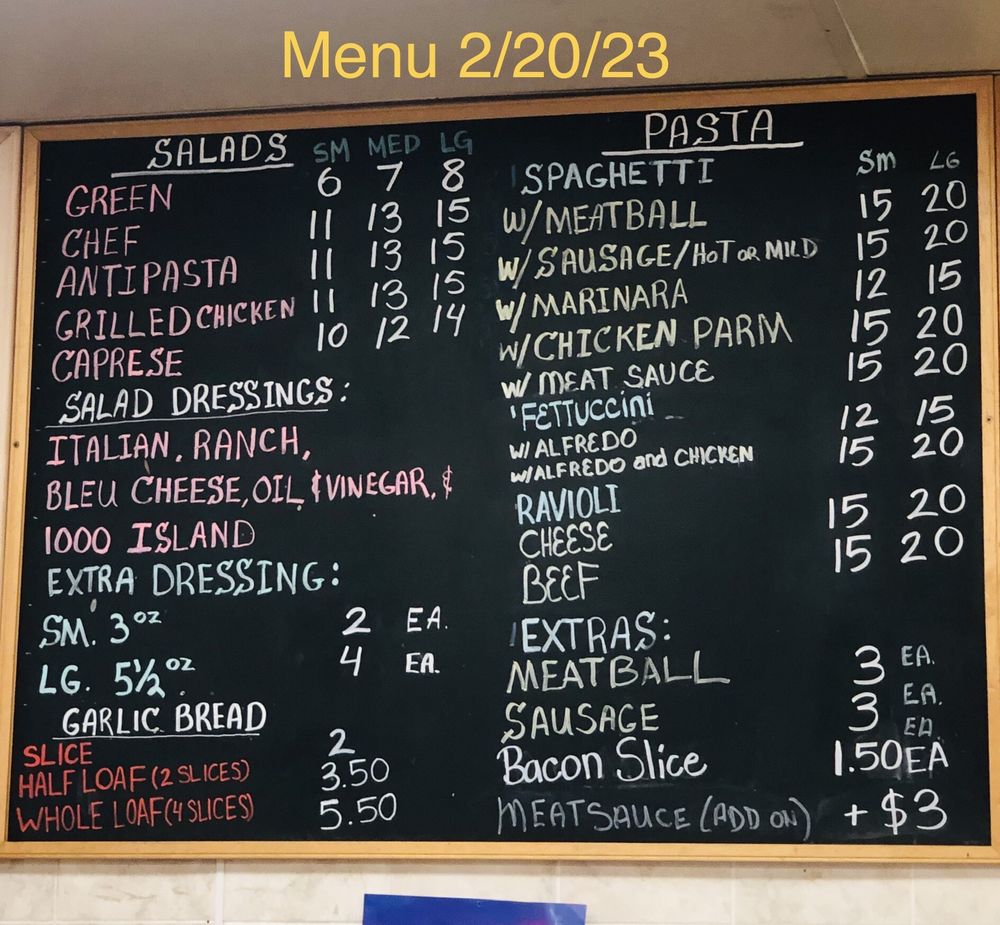 Menu 2/20/23
SALADS SM MED LG
GREEN 6 7 8
CHEF 11 13 15
ANTIPASTA 11 13 15
GRILLED CHICKEN 11 13 15
CAPRESE 10 12 14
SALAD DRESSINGS:
ITALIAN, RANCH,
BLEU CHEESE, OIL & VINEGAR, &
1000 ISLAND
EXTRA DRESSING:
SM. 3 oz 2 EA.
LG. 5½ oz. 4 EA.
GARLIC BREAD
SLICE 2
HALF LOAF (2 SLICES) 3.50
WHOLE LOAF (4 SLICES) 5.50
PASTA
SPAGHETTI Sm LG
W/ MEATBALL 15 20
W/ SAUSAGE/HOT OR MILD 15 20
W/ MARINARA 12 15
W/ CHICKEN PARM 15 20
W/ MEAT SAUCE 15 20
FETTUCCINI
W/ ALFREDO 12 15
W/ ALFREDO and CHICKEN 15 20
RAVIOLI
CHEESE 15 20
BEEF 15 20
EXTRAS:
MEATBALL 3 EA.
SAUSAGE 3 EA.
EA.
Bacon Slice 1.50 EA
MEAT SAUCE (ADD ON) + $3